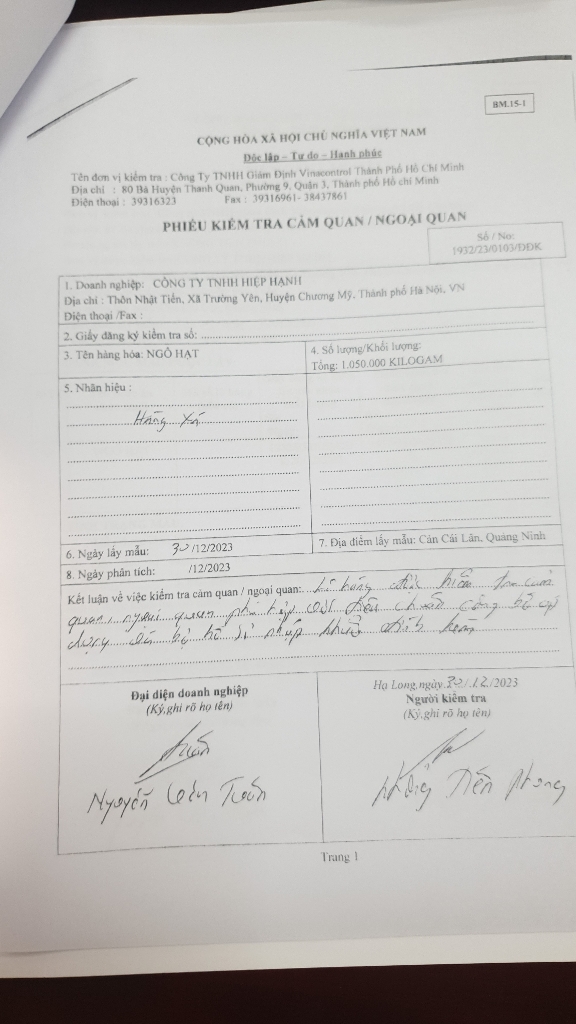 BM.15-1
CỘNG HÒA XÃ HỘI CHỦ NGHĨA VIỆT NAM
Độc lập – Tự do – Hạnh phúc
Tên đơn vị kiểm tra : Công Ty TNHH Giám Định Vinacontrol Thành Phố Hồ Chí Minh
Địa chỉ : 80 Bà Huyện Thanh Quan, Phường 9, Quận 3, Thành phố Hồ chí Minh
Điện thoại : 39316323 Fax : 39316961- 38437861
PHIẾU KIỂM TRA CẢM QUAN / NGOẠI QUAN
Số / No:
1932/23/0103/ĐĐK
1. Doanh nghiệp: CÔNG TY TNHH HIỆP HẠNH
Địa chỉ : Thôn Nhật Tiến, Xã Trường Yên, Huyện Chương Mỹ, Thành phố Hà Nội, VN
Điện thoại /Fax :
2. Giấy đăng ký kiểm tra số:
3. Tên hàng hóa: NGÔ HẠT
4. Số lượng/Khối lượng:
Tổng: 1.050.000 KILOGAM
5. Nhãn hiệu :
Hàng xá
6. Ngày lấy mẫu: 30/12/2023
7. Địa điểm lấy mẫu: Cản Cái Lân, Quảng Ninh
8. Ngày phân tích: /12/2023
Kết luận về việc kiểm tra cảm quan / ngoại quan: Lô hàng được kiểm tra cảm
quan, ngoại quan phù hợp với tiêu chuẩn công bố áp
dụng và bộ hồ sơ nhập khẩu đính kèm
Đại diện doanh nghiệp
(Ký,ghi rõ họ tên)
Nguyễn Văn Tuấn
Hạ Long,ngày 30/12/2023
Người kiểm tra
(Ký,ghi rõ họ tên)
Tiến Phong
Trang 1